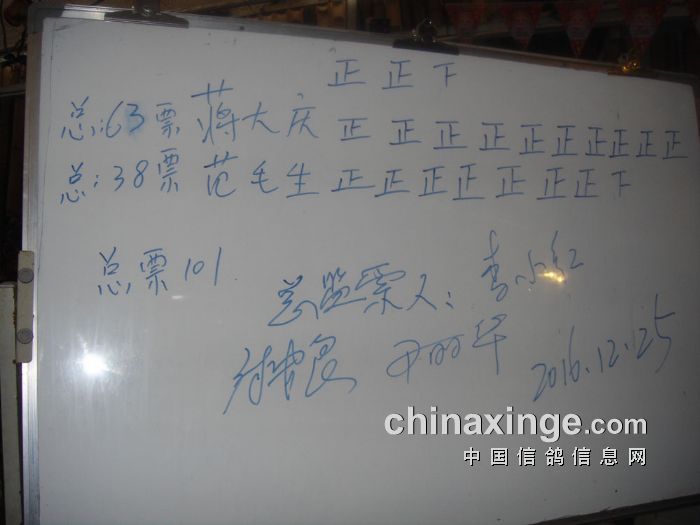 正正下
总:63票 蒋大庆 正正正正正正正正正正
总:38票 范毛生 正正正正正正正下
总票101
总监票人: 李小红
尹丽华 2016.12.25
chinaxinge.com
中国信鸽信息网